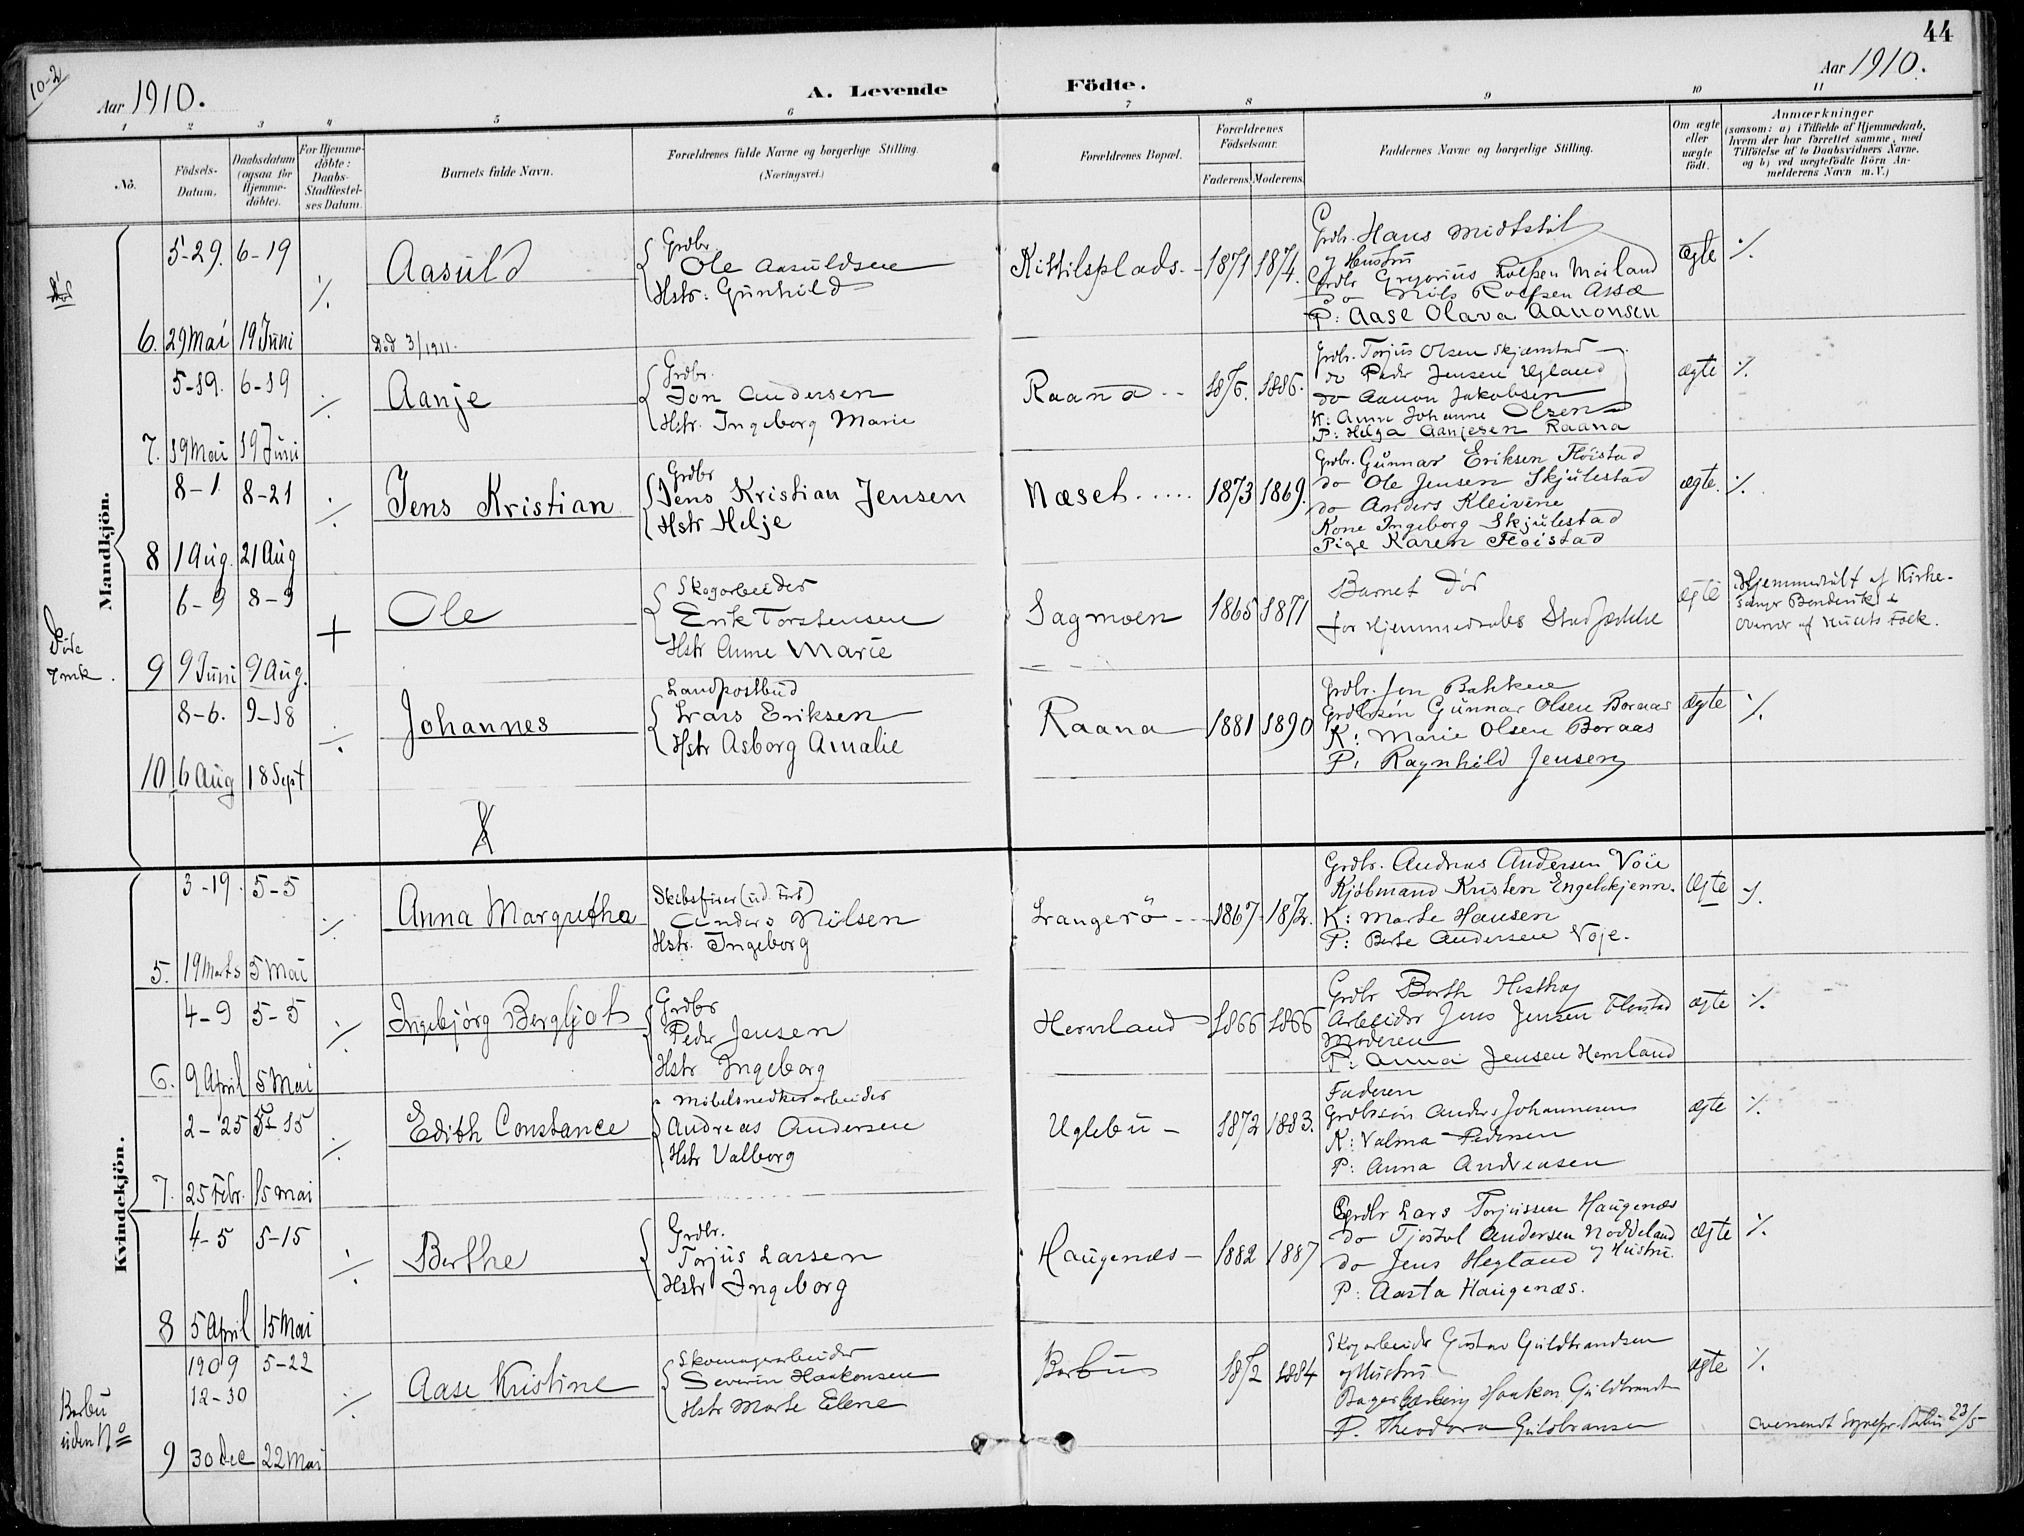 44
10-2
Aar 1910.
A. Levende Födte.
Aar 1910.
1 2 3 4 5 6 7 8 9 10 11
No.
Födsels-Datum.
Daabsdatum (ogsaa for Hjemmedöbte).
For Hjemmedöbte: Daabs-Stadfæstelses Datum.
Barnets fulde Navn.
Forældrenes fulde Navne og borgerlige Stilling.
(Næringsvei.)
Forældrenes Bopæl.
Forældrenes Födselsaar.
Faderens. Moderens.
Faddernes Navne og borgerlige Stilling.
Om ægte eller uægte født.
Anmærkninger
(saasom: a) i Tilfælde af Hjemmedaab, hvem der har forrettet samme, med Tilföielse af to Daabsvidners Navne. og b) ved uægtefödte Börn Anmelderens Navn m.V.)
Mandkjön.
5-29. 6-19
6. 29 Mai 19 Juni
·/.
Aasuld
Död 3/1911.
Grdbr.
Ole Aasuldsen
Hstr: Gunhild
Kittilsplads.
1871 1874.
Grdbr. Hans Midtstöl
og Hustru
Grdbr Gregorius Rolfsen Moiland
do Nils Rolfsen Assæ
P: Aase Olava Aanonsen
ægte ·/.
5-19. 6-19
7. 19 Mai 19 Juni
·/.
Aanje
Grdbr.
Jon Andersen
Hstr. Ingeborg Marie
Raana
1876. 1886.
Grdbr. Torjus Olsen Skjæmstad
do Peder Jensen Ugland
do Aanon Jakobsen
K: Anna Johanne Olsen
P: Helga Aanjesen Raana
ægte ·/.
8-1 8-21
8 1 Aug. 21 Aug
·/.
Jens Kristian
Grdbr
Jens Kristian Jensen
Hstr Helje
Næset
1873 1869.
Grdbr. Gunnar Eriksen Flöistad
do Ole Jensen Skjulestad
do Anders Kleivene
Kone Ingeborg Skjulestad
Pige Karen Flöistad
ægte. ·/.
6-9 8-9
9 9 Juni 9 Aug.
+
Ole
Skogarbeider
Erik Torstensen
Hstr Anne Marie
Sagmoen
1865 1871
Barnet död
før Hjemmedaabs Stadfæstelse
ægte
Hjemmedöbt af Kirke-
8-6. 9-18
10 6 Aug 18 Sept
·/.
Johannes
Landpostbud
Lars Eriksen
Hstr Asborg Amalie
Raana
1881 1890
Grdbr. Jon Bakken
Grdbrsön Gunnar Olsen Boraas
K: Marie Olsen Boraas
P: Ragnhild Jensen
ægte ·/.
Kvindekjön.
3-19. 5-5
5. 19 Marts 5 Mai
·/.
Anna Margretha
Skibsfører (ud. Fart)
Anders Nilsen
Hstr. Ingeborg
Langerö
1867 1872.
Grdbr. Andreas Andersen Vöie
Kjöbmand Kristen Engelskjenn.
K: Marte Hansen
P: Berte Andersen Voje.
ægte
4-9 5-5
6. 9 April 5 Mai
·/.
Ingebjörg Bergljot
Grdbr
Peder Jensen
Hstr Ingeborg
Herreland
1866 1866
Grdbr Berth Hesthag
Arbeider Jens Jensen Flöistad
Moderen
P: Anna Jensen Herreland
ægte ·/.
2-25 5-15
7. 25 Febr. 15 Mai
·/.
Edith Constance
Möbelsnedkerarbeider
Andreas Andersen
Hstr Valborg
Uglebu
1872 1883.
Faderen
Grdbrsön Anders Johannesen
K: Valma Pedersen
P: Anna Andreasen
ægte ·/.
4-5 5-15
8 5 April 15 Mai
·/.
Berthe
Grdbr.
Torjus Larsen
Hstr Ingeborg
Haugenæs
1882 1887
Grdbr Lars Torjussen Haugenæs
do Tjöstol Andersen Noddeland
do Jens Hegland og Hustru.
P: Aasta Haugenæs.
ægte ·/.
Barbu uden No
1909 5-22
12-30
9 30 Dec 22 Mai
·/.
Aase Kristine
Skomagerarbeider
Severin Haakonsen
Hstr Marte Elene
Barbu
1872 1884
Skogarbeider Gustav Guldbrandsen
og Hustru
Haakon Guldbrandsen
P. Theodora Guldbransen
ægte ·/.
oversendt Sognepr. Barbu 23/5